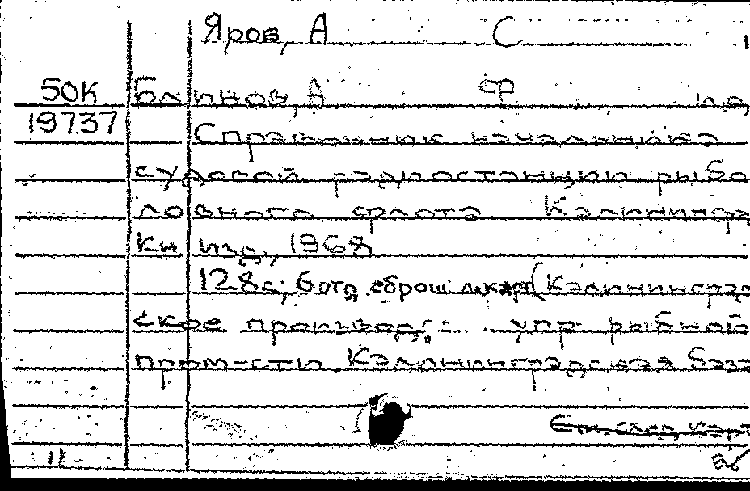 Яров, А С
50К Блинов, А Ф
19737 Справочник начальника
судовой радиостанции рыбо
ловного флота Калинингра
Кн изд., 1968
128 с; 6 отд. сброш. л. карт (Калининград
ское производ. упр рыбной
пром-сти Калининградская база
См. след. карт
11